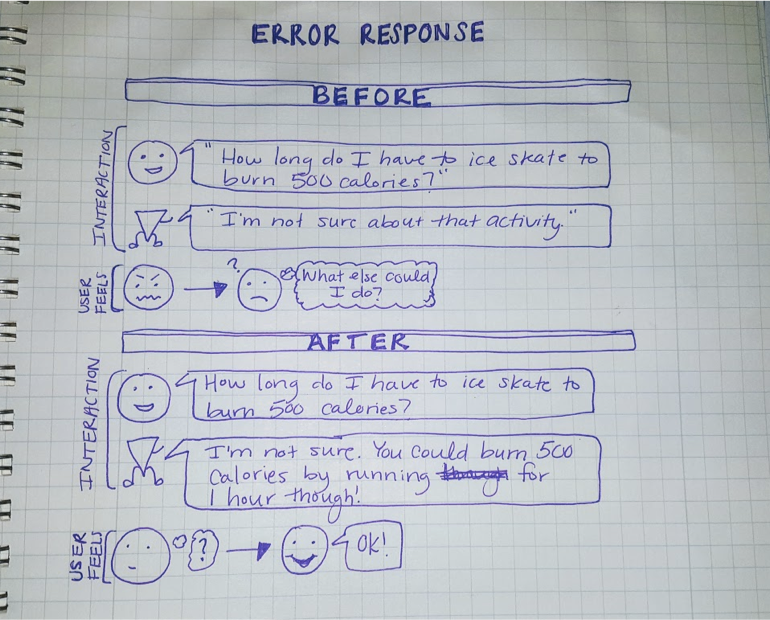 ERROR RESPONSE
BEFORE
INTERACTION
"How long do I have to ice skate to
burn 500 calories?"
"I'm not sure about that activity."
USER
FEELS
?
What else could
I do?
AFTER
INTERACTION
How long do I have to ice skate to
burn 500 calories?
I'm not sure. You could burn 500
calories by running though for
1 hour though!
USER
FEELS
?
OK!